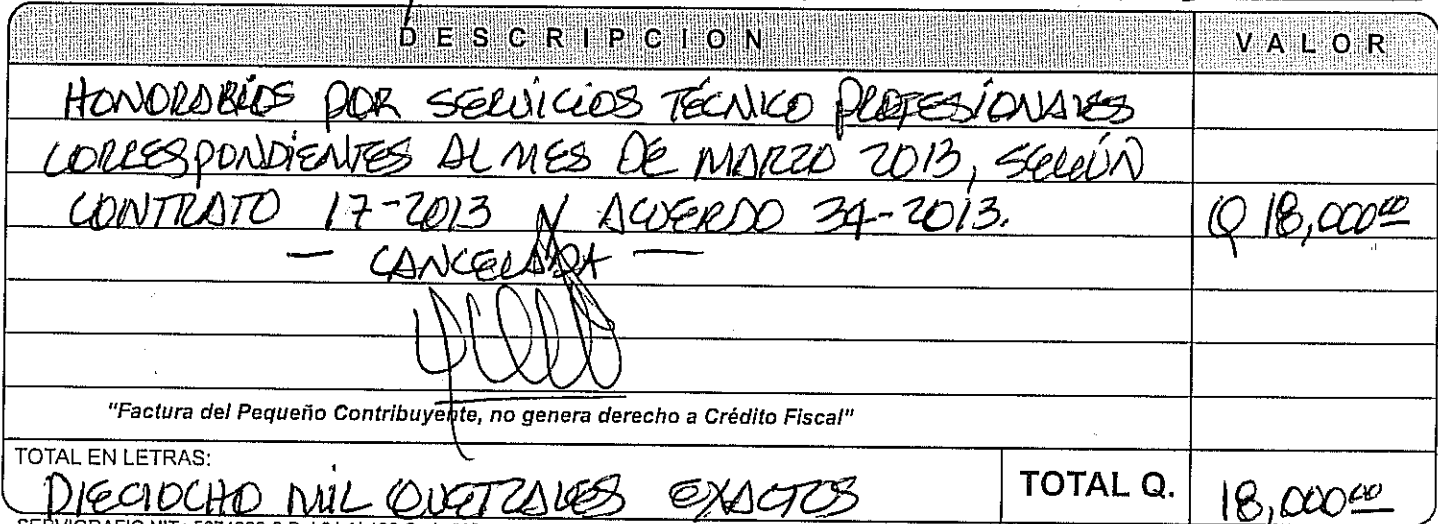 DESCRIPCION VALOR
HONORARIOS POR SERVICIOS TÉCNICO PROFESIONALES
CORRESPONDIENTES AL MES DE MARZO 2013, SEGÚN
CONTRATO 17-2013 Y ACUERDO 34-2013. Q 18,000.00
— CANCELADA —
"Factura del Pequeño Contribuyente, no genera derecho a Crédito Fiscal"
TOTAL EN LETRAS:
DIECIOCHO MIL QUETZALES EXACTOS TOTAL Q. 18,000.00